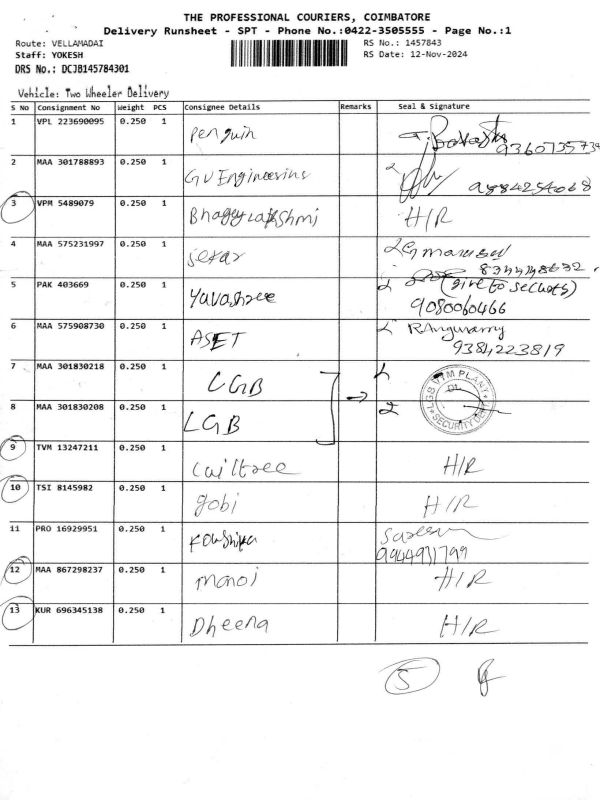 THE PROFESSIONAL COURIERS, COIMBATORE
Delivery Runsheet - SPT - Phone No.:0422-3505555 - Page No.:1
Route: VELLAMADAI
RS No.: 1457843
Staff: YOKESH
RS Date: 12-Nov-2024
DRS No.: DCJB145784301
Vehicle: Two Wheeler Delivery
S No Consignment No Weight PCS Consignee Details Remarks Seal & signature
1 VPL 223690095 0.250 1 Penguin
2 MAA 301788893 0.250 1 GV Engineering
3 VPM 5489079 0.250 1 H/R
4 MAA 575231997 0.250 1 Sekar
8344148632
5 PAK 403669 0.250 1 Yuvashree (give to
9080060466
6 MAA 575908730 0.250 1 ASET
9384223819
7 MAA 301830218 0.250 1 LGB
LGB VTM PLANT SECURITY
8 MAA 301830208 0.250 1 LGB
9 TVM 13247211 0.250 1 H/R
10 TSI 8145982 0.250 1 gobi H/R
11 PRO 16929951 0.250 1
9944931799
12 MAA 867298237 0.250 1 manoj H/R
13 KUR 696345138 0.250 1 Dheena H/R
5